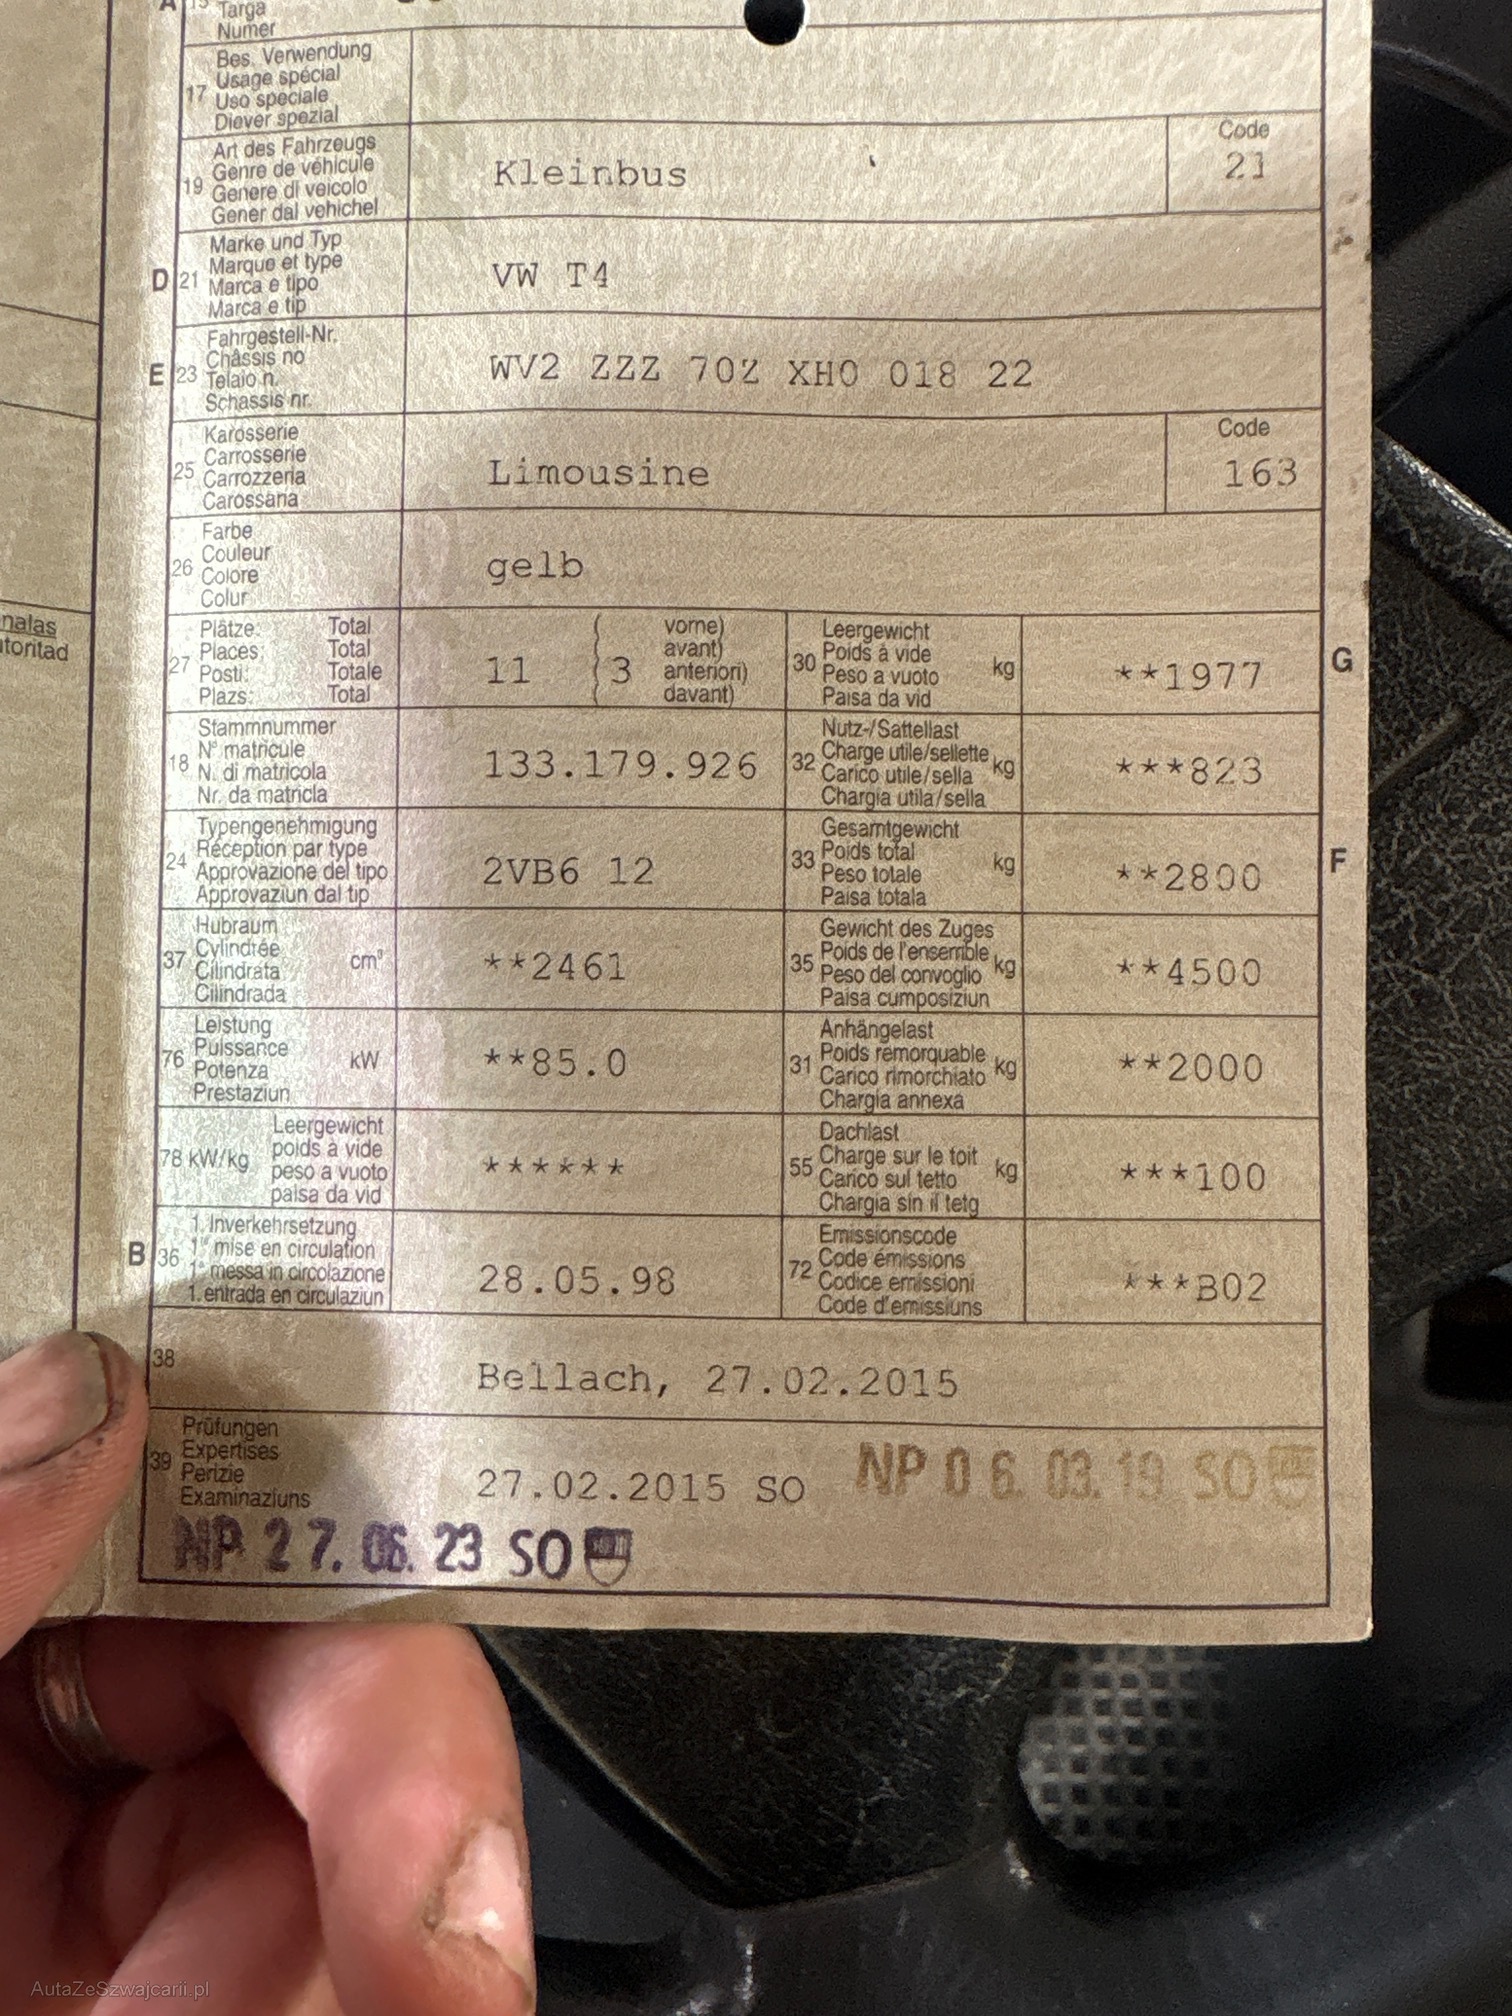 A 15 Targa
Numer
17 Bes. Verwendung
Usage spécial
Uso speciale
Diever spezial
19 Art des Fahrzeugs
Genre de véhicule
Genere di veicolo
Gener dal vehichel
Kleinbus
Code
21
D 21 Marke und Typ
Marque et type
Marca e tipo
Marca e tip
VW T4
E 23 Fahrgestell-Nr.
Châssis no
Telaio n.
Schassis nr.
WV2 ZZZ 70Z XH0 018 22
25 Karosserie
Carrosserie
Carrozzeria
Carossaria
Limousine
Code
163
26 Farbe
Couleur
Colore
Colur
gelb
nalas
utoritad
27 Plätze: Total
Places: Total
Posti: Totale
Plazs: Total
11 ( 3 vorne)
( avant)
( anteriori)
( davant)
30 Leergewicht
Poids à vide
Peso a vuoto
Paisa da vid
kg
**1977
G
18 Stammnummer
N° matricule
N. di matricola
Nr. da matricla
133.179.926
32 Nutz-/Sattellast
Charge utile/sellette
Carico utile/sella
Chargia utila/sella
kg
***823
24 Typengenehmigung
Réception par type
Approvazione del tipo
Approvaziun dal tip
2VB6 12
33 Gesamtgewicht
Poids total
Peso totale
Paisa totala
kg
**2800
F
37 Hubraum
Cylindrée
Cilindrata
Cilindrada
cm³
**2461
35 Gewicht des Zuges
Poids de l'ensemble
Peso del convoglio
Paisa cumposiziun
kg
**4500
76 Leistung
Puissance
Potenza
Prestaziun
kW
**85.0
31 Anhängelast
Poids remorquable
Carico rimorchiato
Chargia annexa
kg
**2000
78 kW/kg
Leergewicht
poids à vide
peso a vuoto
paisa da vid
******
55 Dachlast
Charge sur le toit
Carico sul tetto
Chargia sin il tetg
kg
***100
B 36 1. Inverkehrsetzung
1re mise en circulation
1a messa in circolazione
1. entrada en circulaziun
28.05.98
72 Emissionscode
Code émissions
Codice emissioni
Code d'emissiuns
***B02
38
Bellach, 27.02.2015
39 Prüfungen
Expertises
Perizie
Examinaziuns
27.02.2015 SO
NP 06.03.19 SO
NP 27.06.23 SO
AutaZeSzwajcarii.pl